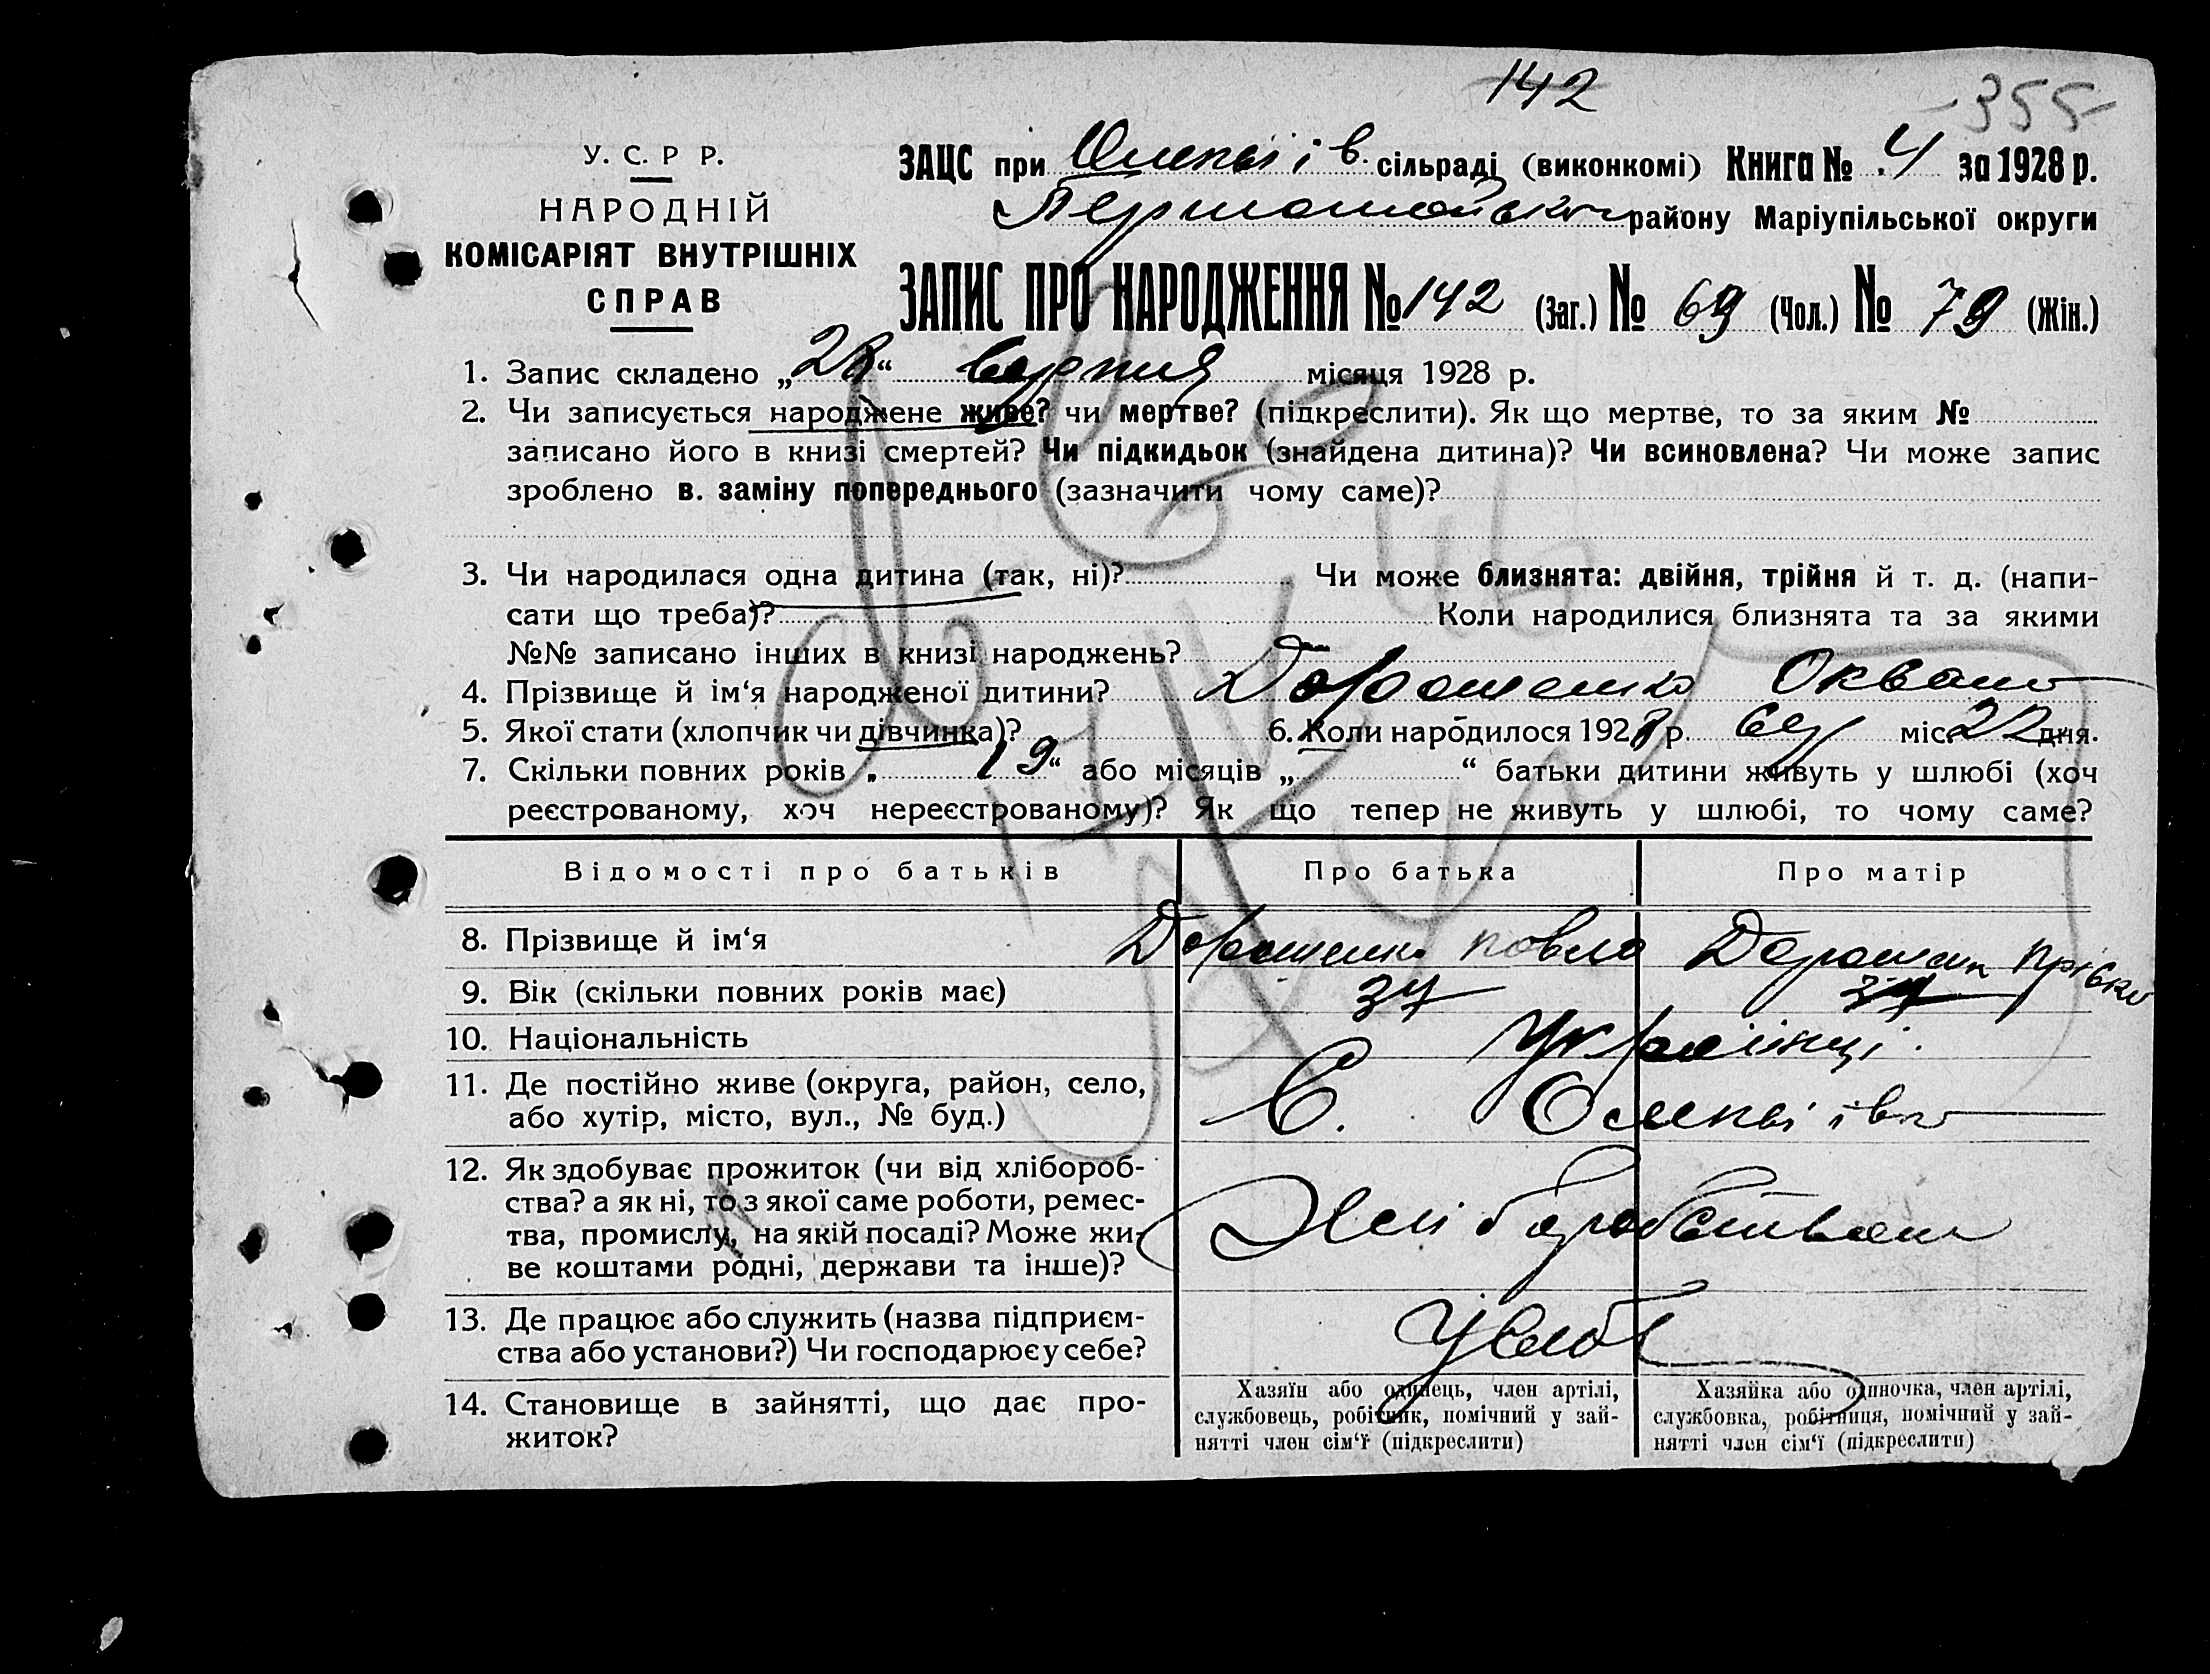 142
355
У. С. Р Р.
НАРОДНІЙ
КОМІСАРІЯТ ВНУТРІШНІХ
СПРАВ
ЗАЦС при сільраді (виконкомі) Книга № 4 за 1928 р.
Першотравнського району Маріупільської округи
ЗАПИС ПРО НАРОДЖЕННЯ № 142 (Заг.) № 69 (Чол.) № 79 (Жін.)
1. Запис складено „ “ Серпня місяця 1928 р.
2. Чи записується народжене живе? чи мертве? (підкреслити). Як що мертве, то за яким №
записано його в книзі смертей? Чи підкидьок (знайдена дитина)? Чи всиновлена? Чи може запис
зроблено в. заміну попереднього (зазначити чому саме)?
3. Чи народилася одна дитина (так, ні)? Чи може близнята: двійня, трійня й т. д. (напи-
сати що треба)? Коли народилися близнята та за якими
№№ записано інших в книзі народжень?
4. Прізвище й ім‘я народженої дитини? Дорошенко
5. Якої стати (хлопчик чи дівчинка)? 6. Коли народилося 1928 р. Сер міс. 22 дня.
7. Скільки повних років „ 19 “ або місяців „ “ батьки дитини живуть у шлюбі (хоч
реєстрованому, хоч нереєстрованому)? Як що тепер не живуть у шлюбі, то чому саме?
Відомості про батьків Про батька Про матір
8. Прізвище й ім‘я Дорошенко Павло
9. Вік (скільки повних років має) 37 37
10. Національність Українці
11. Де постійно живе (округа, район, село,
або хутір, місто, вул., № буд.) С.
12. Як здобуває прожиток (чи від хлібороб-
ства? а як ні, то з якої саме роботи, ремес-
тва, промислу, на якій посаді? Може жи-
ве коштами родні, держави та інше)? Хліборобством
13. Де працює або служить (назва підприєм-
ства або установи?) Чи господарює у себе? У себе
14. Становище в зайнятті, що дає про-
житок?
Хазяїн або одинець, член артілі,
службовець, робітник, помічний у зай-
нятті член сім‘ї (підкреслити)
Хазяйка або одиночка, член артілі,
службовка, робітниця, помічний у зай-
нятті член сім‘ї (підкреслити)